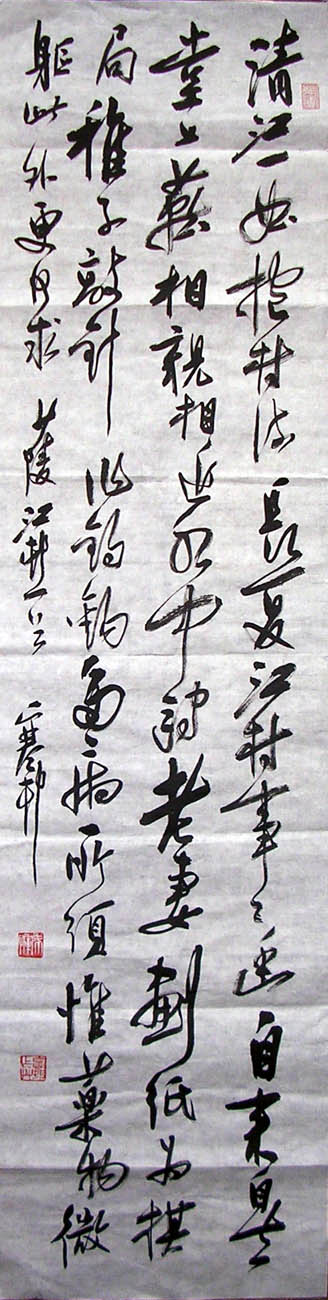 清江一曲抱村流長夏江村事〻幽自来自去
堂上燕相親相近水中鷗老妻劃紙为棋
局稚子敲針作釣鉤多病所須惟藥物微
軀此外更何求 少陵江村一首